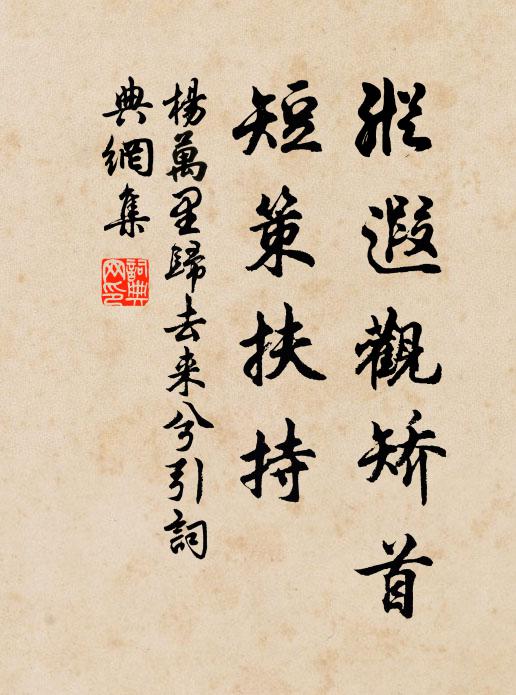 縱遐觀矫首
短策扶持
楊萬里歸去来兮引詞
典網集
詞典
网印